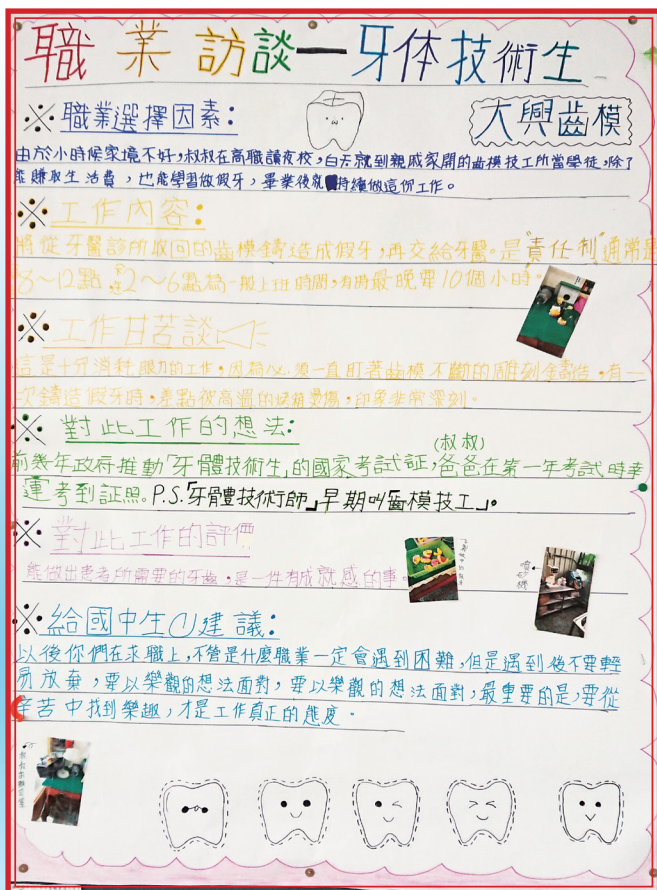 職業訪談一牙体技術生
※職業選擇因素:
大興齒模
由於小時候家境不好,叔叔在高職讀夜校,白天就到親戚家開的齒模技工所當學徒,除了
能賺取生活費,也能學習做假牙,畢業後就持續做這份工作。
※工作內容:
將從牙醫診所取回的齒模鑄造成假牙,再交給牙醫。是"責任制"通常是
8～12點、2～6點為一般上班時間,有時最晚要10個小時。
※工作甘苦談
這是十分消耗眼力的工作,因為必須一直盯著齒模不斷的雕刻、鑄造。有一
次鑄造假牙時,差點被高溫的燙傷,印象非常深刻。
※對此工作的想法:
(叔叔)
前幾年政府推動「牙體技術生」的國家考試証,爸爸在第一年考試時幸
運考到証照。P.S.「牙體技術師」早期叫「齒模技工」。
※對此工作的評價
能做出患者所需要的牙齒,是一件有成就感的事。
噴砂機
※給國中生の建議:
以後你們在求職上,不管是什麼職業一定會遇到困難,但是遇到後不要輕
易放棄,要以樂觀的想法面對,要以樂觀的想法面對,最重要的是,要從
辛苦中找到樂趣,才是工作真正的態度。